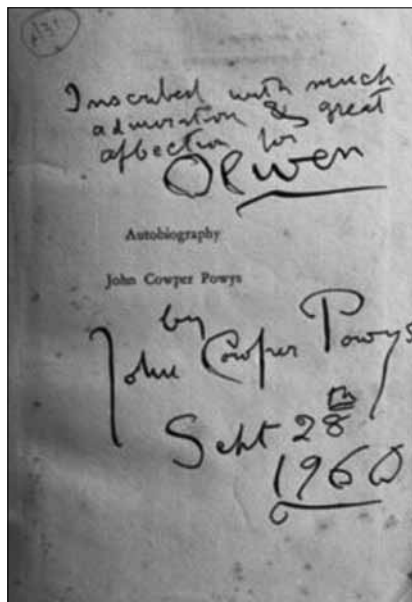 Inscribed with much
admiration & great
affection for
Olwen
Autobiography
John Cowper Powys
by
John Cowper Powys
Sept 28th
1960